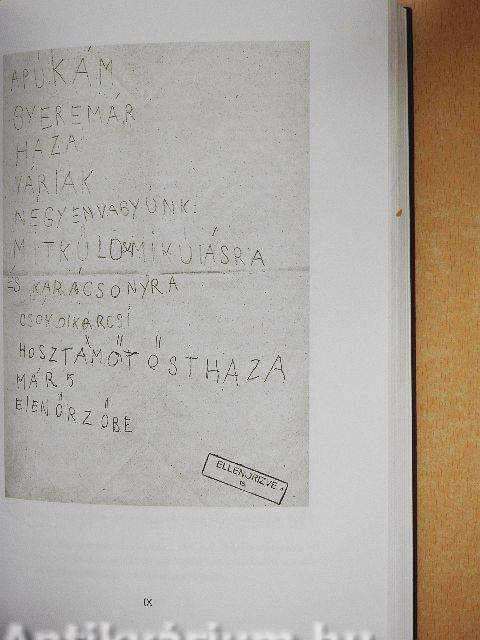 APUKÁM
GYEREMÁR
HAZA
VÁRIAK
NÉGYENVAGYUNK:
MITKŰLD MIKUIÁSRA
ÉS KARÁCSONYRA
CSOKOIKARCSI
HOSZTAMÖTÖSTHAZA
MÁR 5
EIENŐRZŐBE
ELLENŐRIZVE
18.
IX
Antikvárium.hu